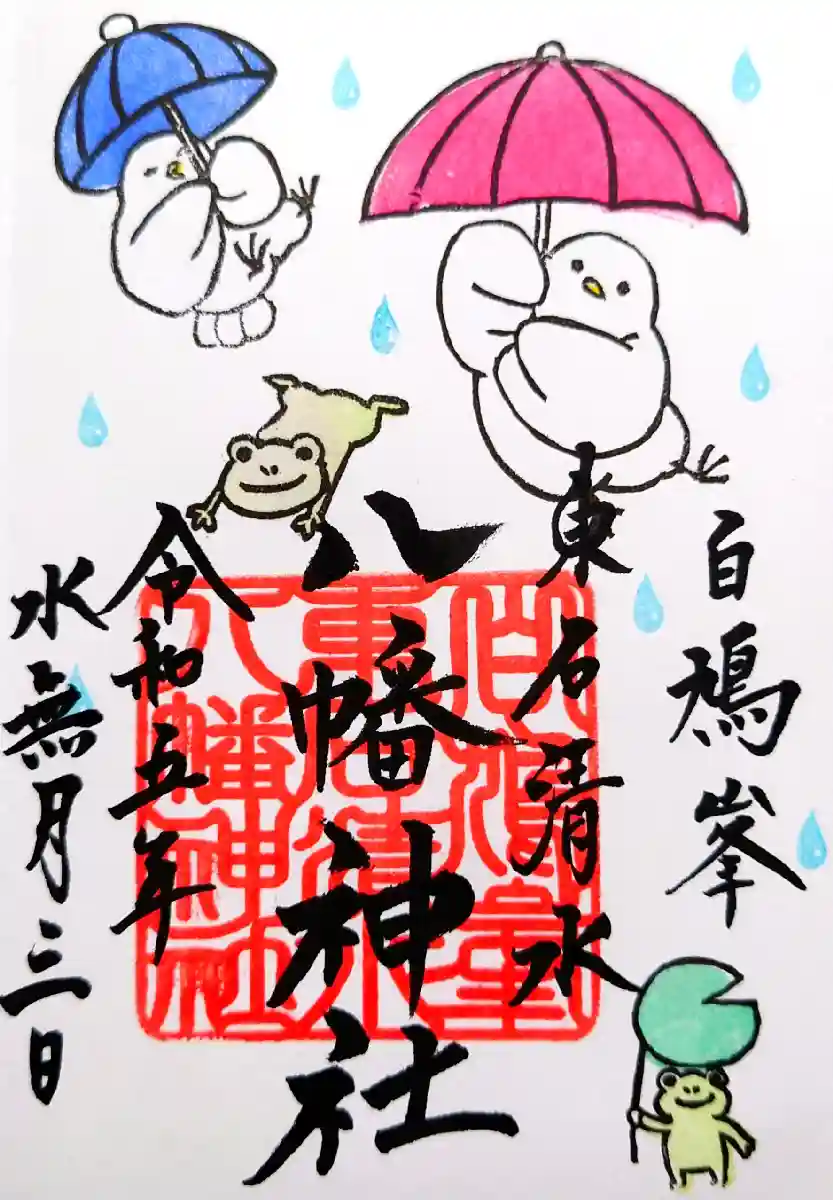 白鳩峯
東石清水
八幡神社
令和五年
水無月三日
白鳩峯
東石清水
八幡神社